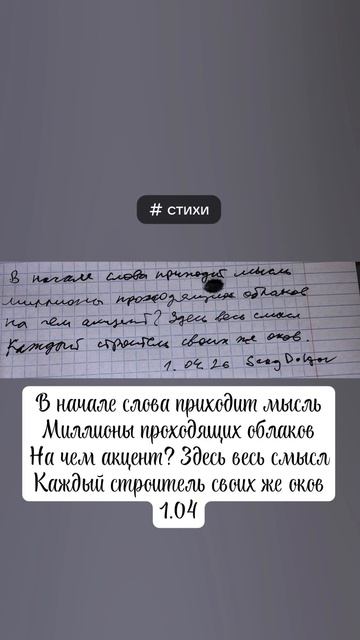 # стихи
В начале слова приходит мысль
миллионы проходящих облаков
на чем акцент? Здесь весь смысл
Каждый строитель своих же оков.
1.04.26
В начале слова приходит мысль
Миллионы проходящих облаков
На чем акцент? Здесь весь смысл
Каждый строитель своих же оков
1.04